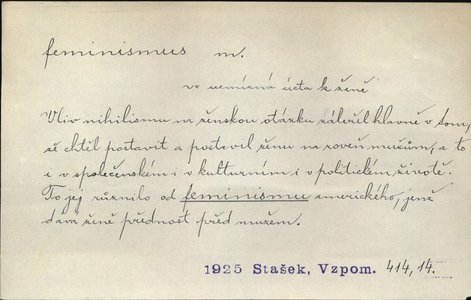 feminismus m.
vz nemírná úcta k ženě
Vliv nihilismu na ženskou otázku záležel hlavně v tom,
že chtěl postavit a postavil ženu na roveň mužům, a to
i v společenském i v kulturním i v politickém životě.
To jej různilo od feminismu amerického, jenž
dává ženě přednost před mužem.
1925 Stašek, Vzpom. 414,14.